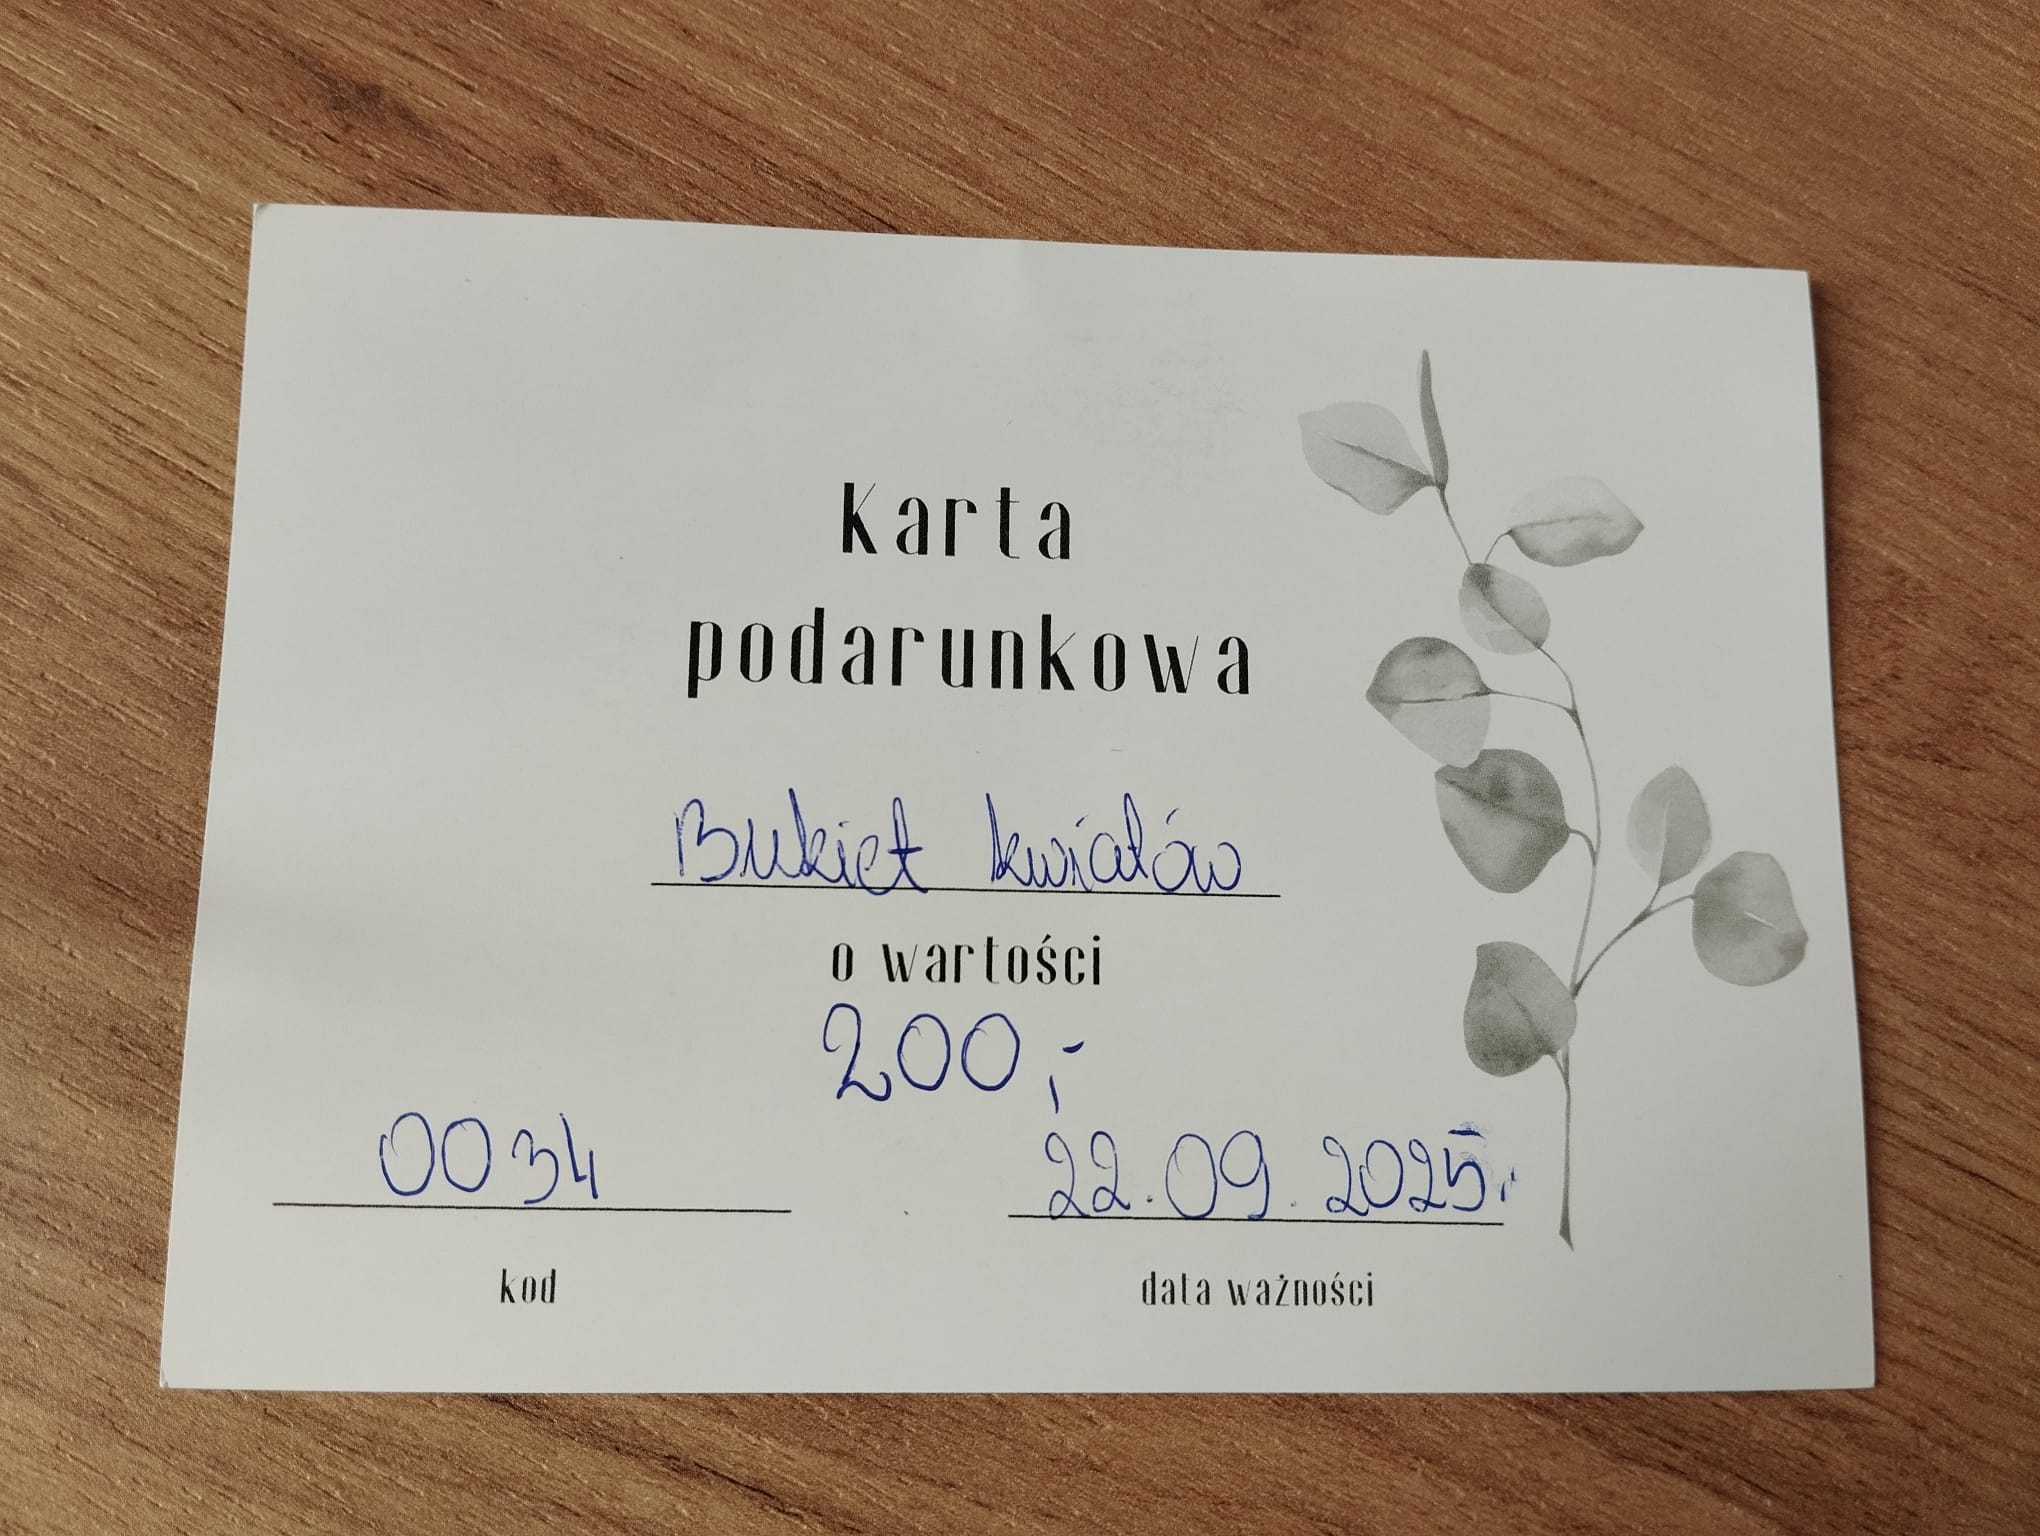 Karta
podarunkowa
Bukiet kwiatów
o wartości
200,-
0034
22.09.2025r
kod
data ważności